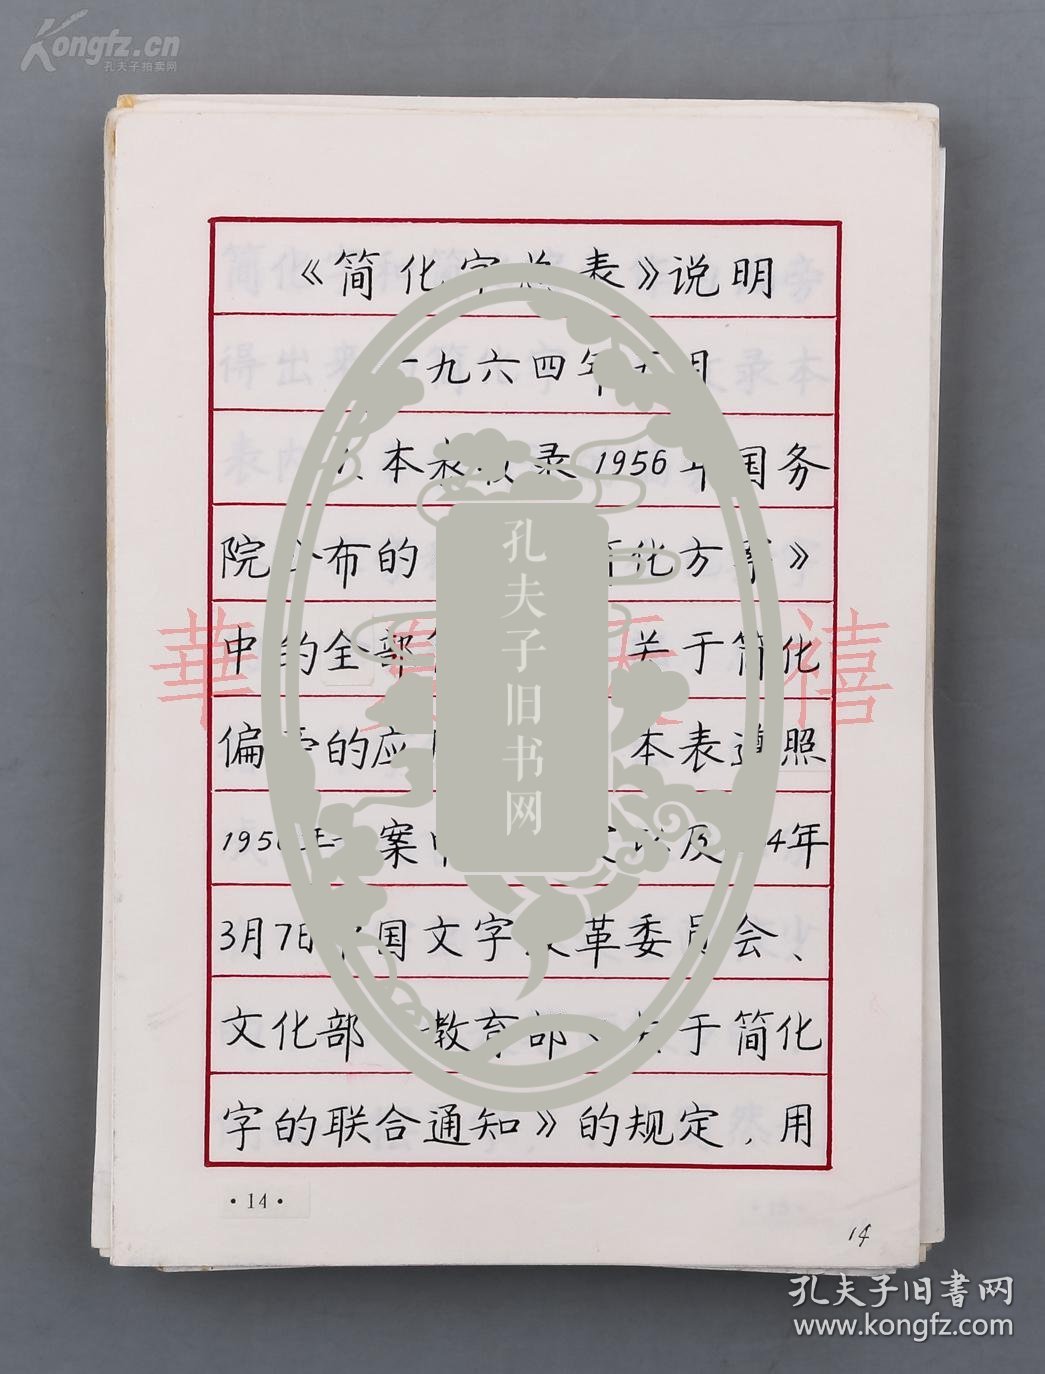 Kongfz.cn
孔夫子拍卖网
《简化字总表》说明
一九六四年五月
本表收录1956年国务
院公布的 简化方案》
中的全部 关于简化
偏旁的应 本表遵照
1956年 案 及 4年
3月7日中国文字改革委员会、
文化部、教育部《关于简化
字的联合通知》的规定,用
華 禧
孔夫子旧书网
·14·
14
孔夫子旧書网
www.kongfz.com